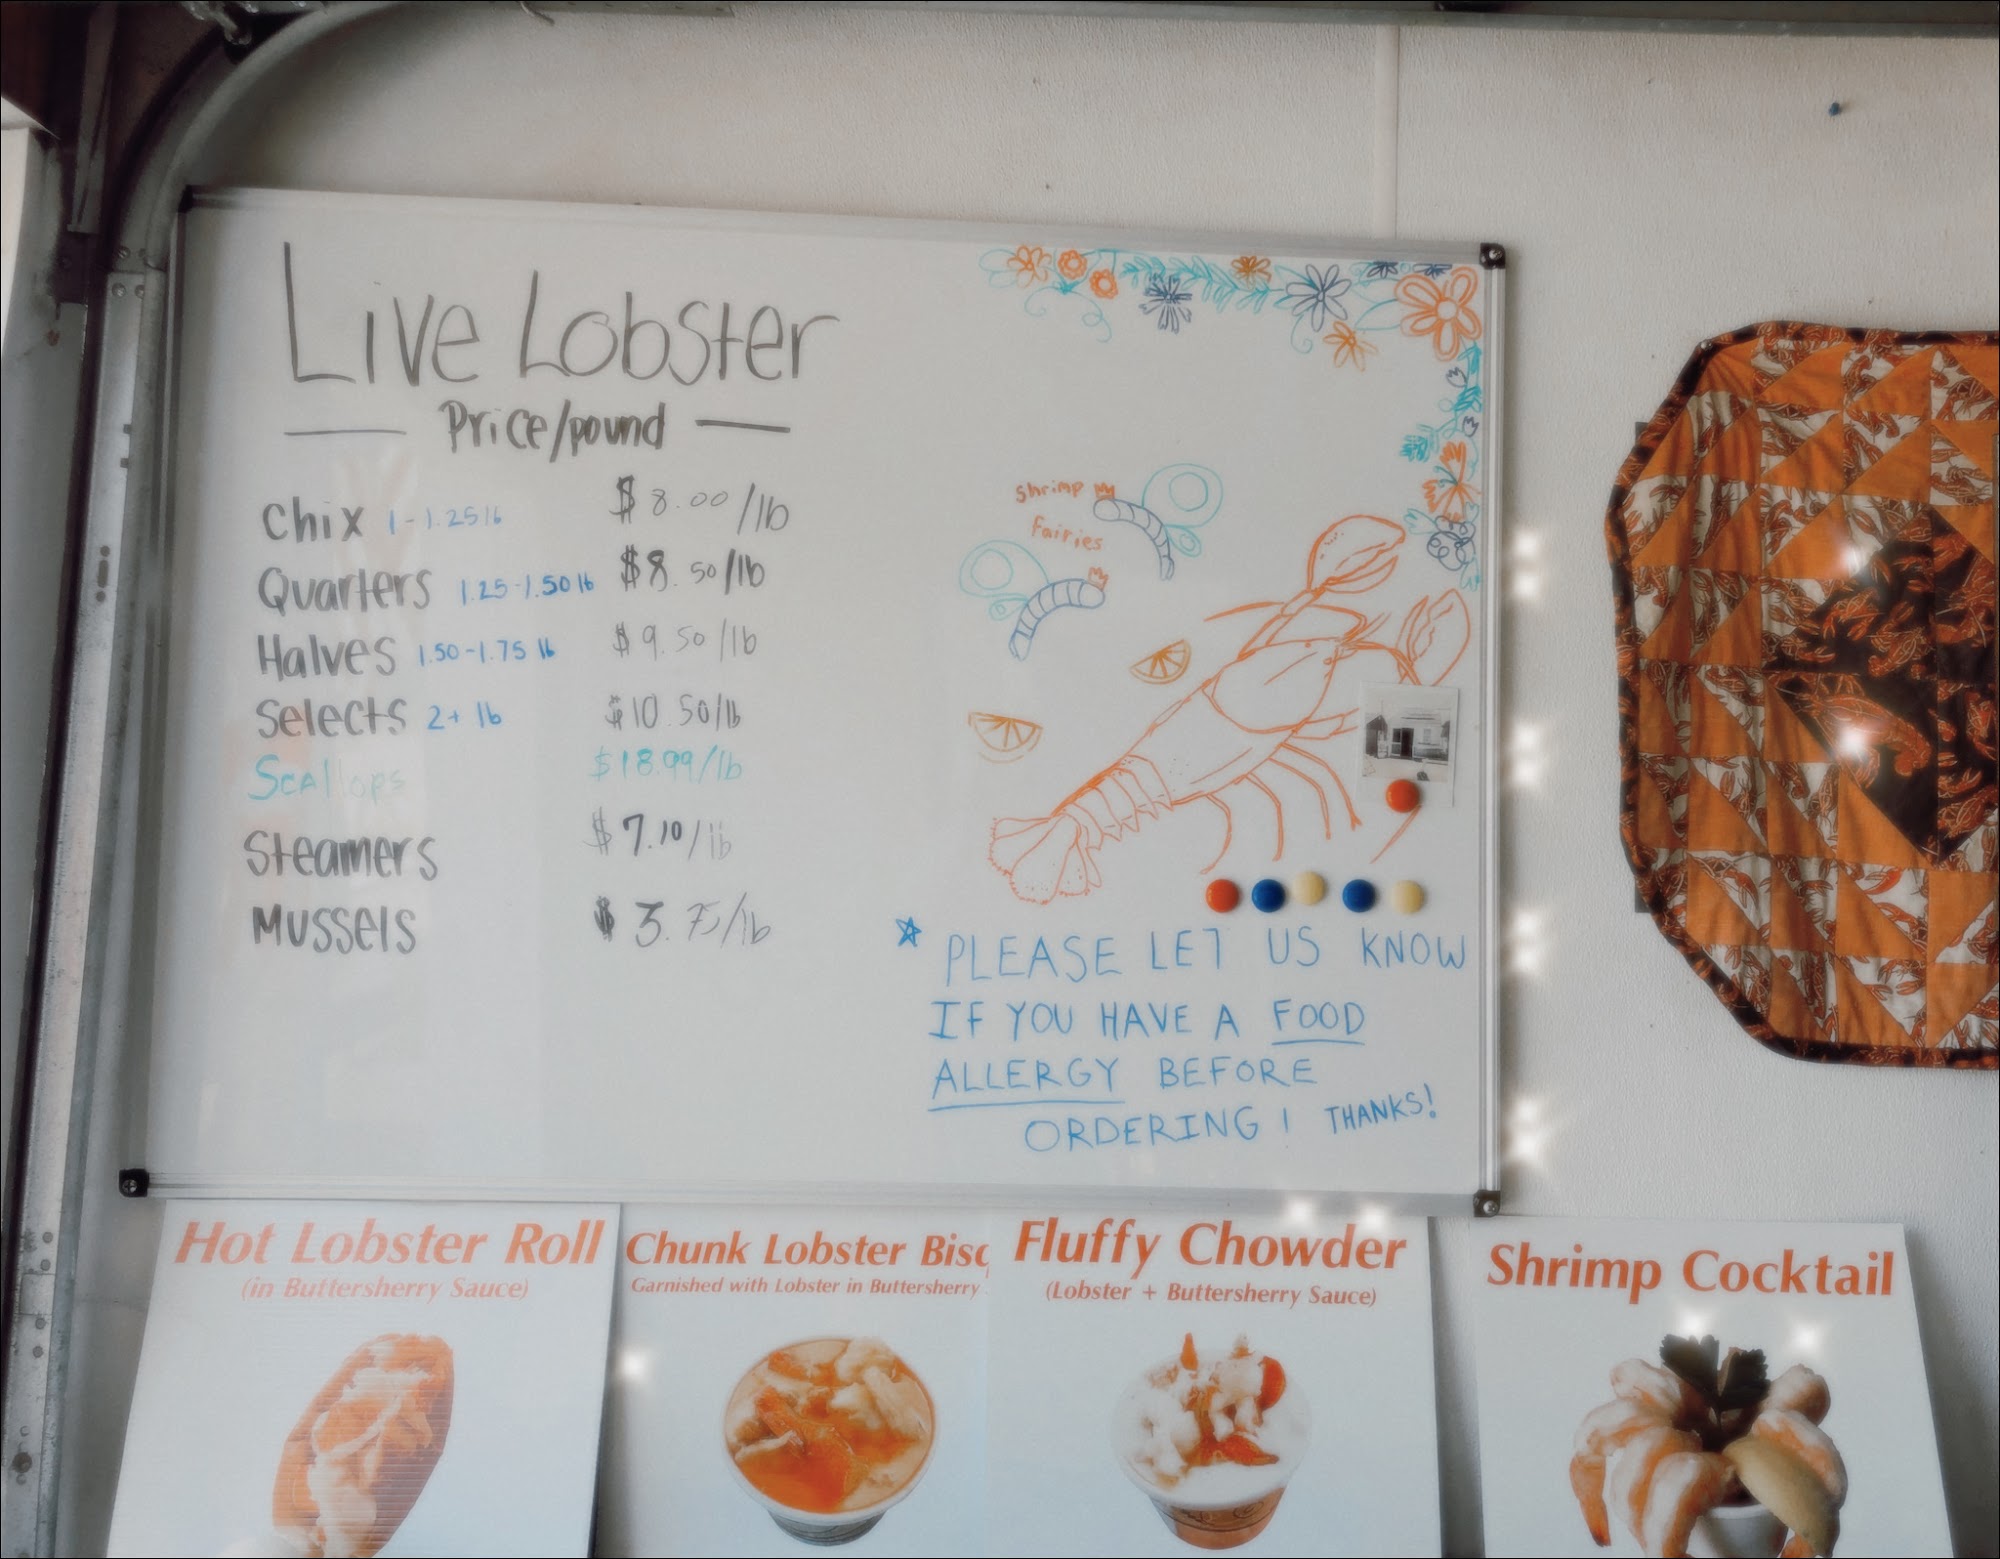 Live Lobster
Price/pound
Chix 1-1.25 lb $8.00/lb
Quarters 1.25-1.50 lb $8.50/lb
Halves 1.50-1.75 lb $9.50/lb
Selects 2+ lb $10.50/lb
Scallops $18.99/lb
Steamers $7.10/lb
Mussels $3.75/lb
Shrimp
Fairies
PLEASE LET US KNOW
IF YOU HAVE A FOOD
ALLERGY BEFORE
ORDERING! THANKS!
Hot Lobster Roll
(in Buttersherry Sauce)
Chunk Lobster Bisq
Garnished with Lobster in Buttersherry
Fluffy Chowder
(Lobster + Buttersherry Sauce)
Shrimp Cocktail